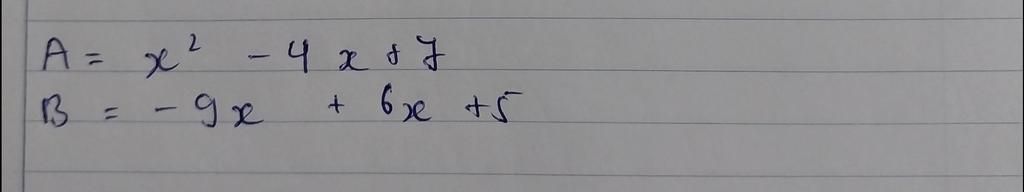 A = x² - 4x + 7
B = - 9x + 6x + 5